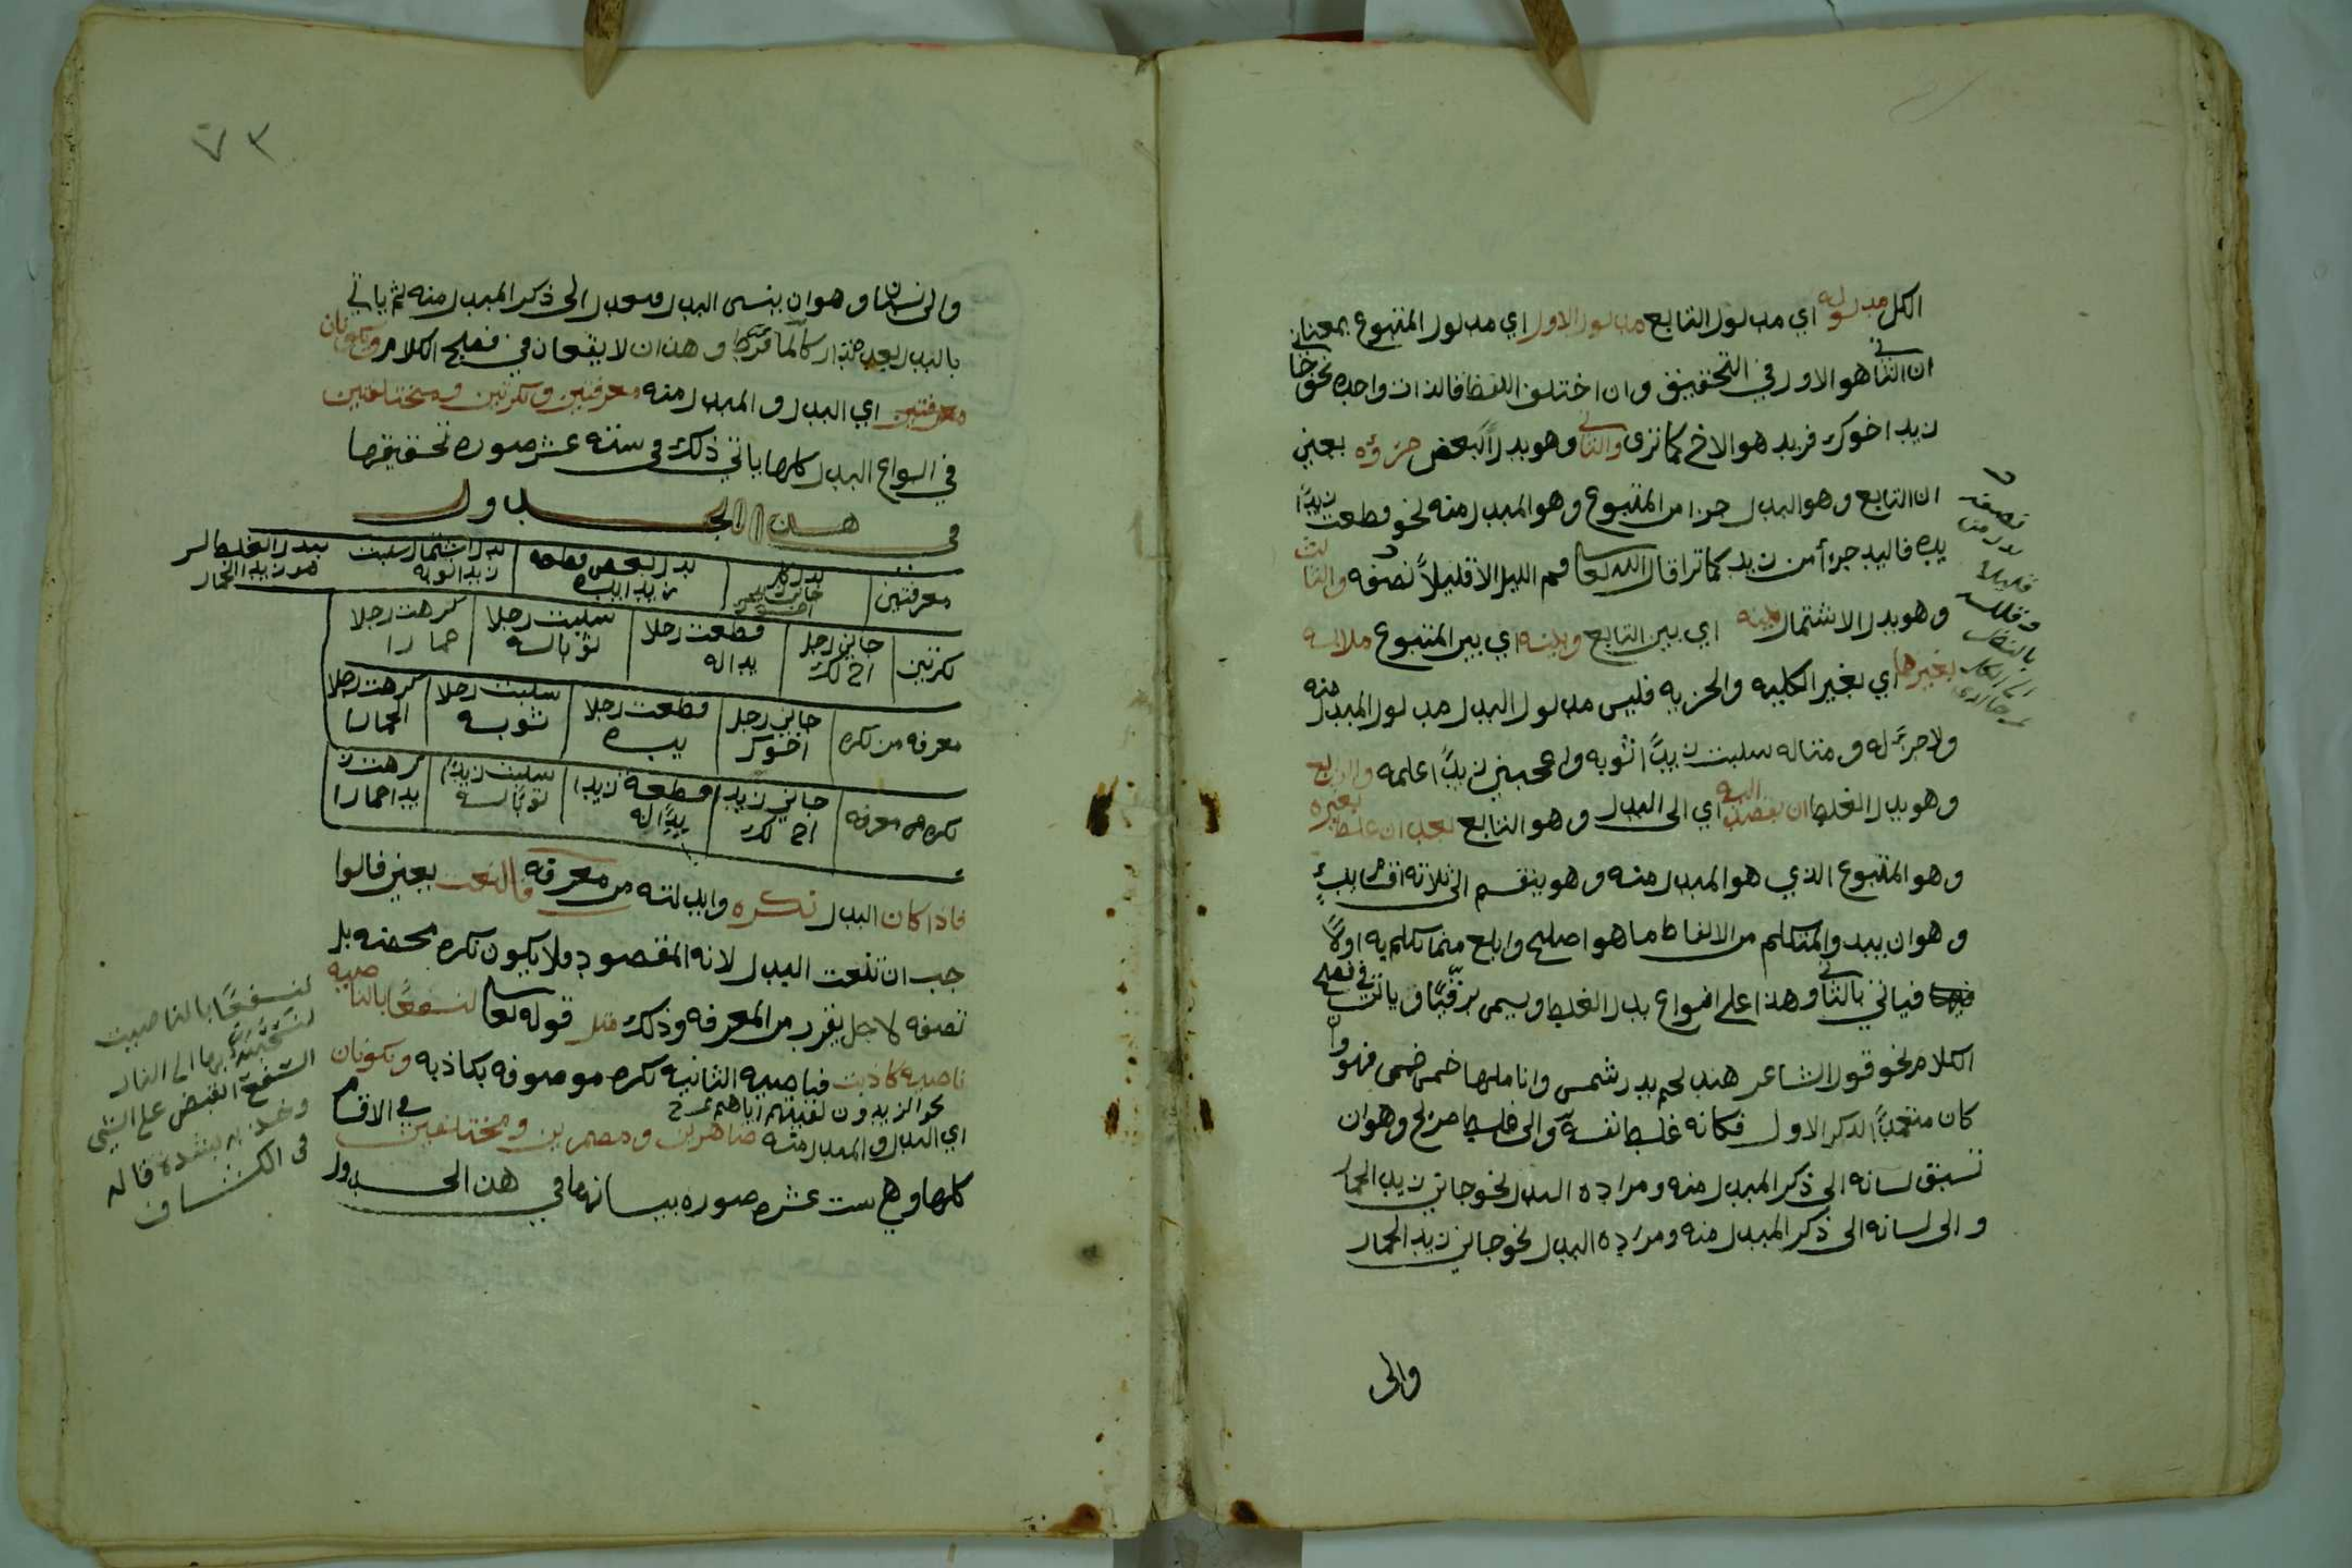 الكل مدلوله اي مدلول التابع مدلول الاول اي مدلول المتبوع بمعنى
ان الثاني هو الاول في التحقيق وان اختلف اللفظ فالذات واحده نحو جا
زيد اخوك فزيد هو الاخ كما ترى والثاني وهو بدل البعض جزؤه بمعنى
ان التابع وهو البدل جزا من المتبوع وهو المبدل منه نحو قطعت زيدًا
يده فاليد جزأ من زيد كما ترا قال الله تعا قم الليل الا قليلاً نصفه والثالث
وهو بدل الاشتمال بينه اي بين التابع وبينه اي بين المتبوع ملابسه
بغيرها اي بغير الكليه والجزيه فليس مدلول البدل مدلول المبدل منه
ولا جزءً له ومثاله سلبت زيدًا ثوبه واعجبني زيدًا علمه والرابع
وهو بدل الغلط ان يقصد اليه اي الى البدل وهو التابع بعد ان غلط بغيره
وهو المتبوع الذي هو المبدل منه وهو ينقسم الى ثلاثه اقسام
وهو ان يبدو المتكلم من الالفاظ ما هو اصلح وابلغ مما تكلم به اولاً
فياتي بالثاني وهذا اعلى انواع بدل الغلط ويسمى ترقيًا وياتي في فصيح
الكلام نحو قول الشاعر هند نجم بدر شمس واناملها فهو وان
كان متعمدًا لذكر الاول فكانه غلط نفسه والى غلط صريح وهو ان
تسبق لسانه الى ذكر المبدل منه ومراده البدل نحو جاني زيد الحمار
والى لسانه الى ذكر المبدل منه ومراده البدل نحو جاني زيد الحمار
والى
نصفه
بدل من
قليلا
وقلته
بالنظر
الى الكل
٧٣
والى نسيان وهو ان ينسى البدل ويعمد الى ذكر المبدل منه ثم ياتي
بالبدل وهذان لا يقعان في فصيح الكلام ويكونان
معرفتين اي البدل والمبدل منه معرفتين ونكرتين ومختلفتين
في انواع البدل كلها ياتي ذلك في سته عشر صوره تحقيقها
في هذا الجدول
معرفتين بدل كل جاني زيد اخوك بدل بعض قطعت زيدا يده بدل اشتمال سلبت زيدا ثوبه بدل الغلط زيدا الحمار
نكرتين جاني رجل اخ لك قطعت رجلا يدا له سلبت رجلا ثوبا له كرهت رجلا حمارا
معرفه من نكره جاني رجل اخوك قطعت رجلا يده سلبت رجلا ثوبه كرهت رجلا الحمارا
نكره من معرفه جاني زيد اخ لك قطعت زيدا يدًا له سلبت زيدًا ثوبًا له كرهت زيدا حمارا
فاذا كان البدل نكره وابدلته من معرفه فالنعت يعني قالوا
جب ان تنعت البدل لانه المقصود فلا يكون نكره محضه بل
تصفه لاجل يقرب من المعرفه وذلك مثل قوله تعا لنسفعًا بالناصيه
ناصيه كاذبت فناصيه الثانيه نكره موصوفه بكاذبه ويكونان
نحو الزيدون لقيتهم اياهم
اي البدل والمبدل منه ظاهرين ومضمرين ومختلفين في الاقسام
كلها وهي ست عشره صوره بيانها في هذا الجدول
لنسفعًا بالناصيت
بها الى النار
السفع القبض على الشي
وجذبه بشده قاله
في الكشاف